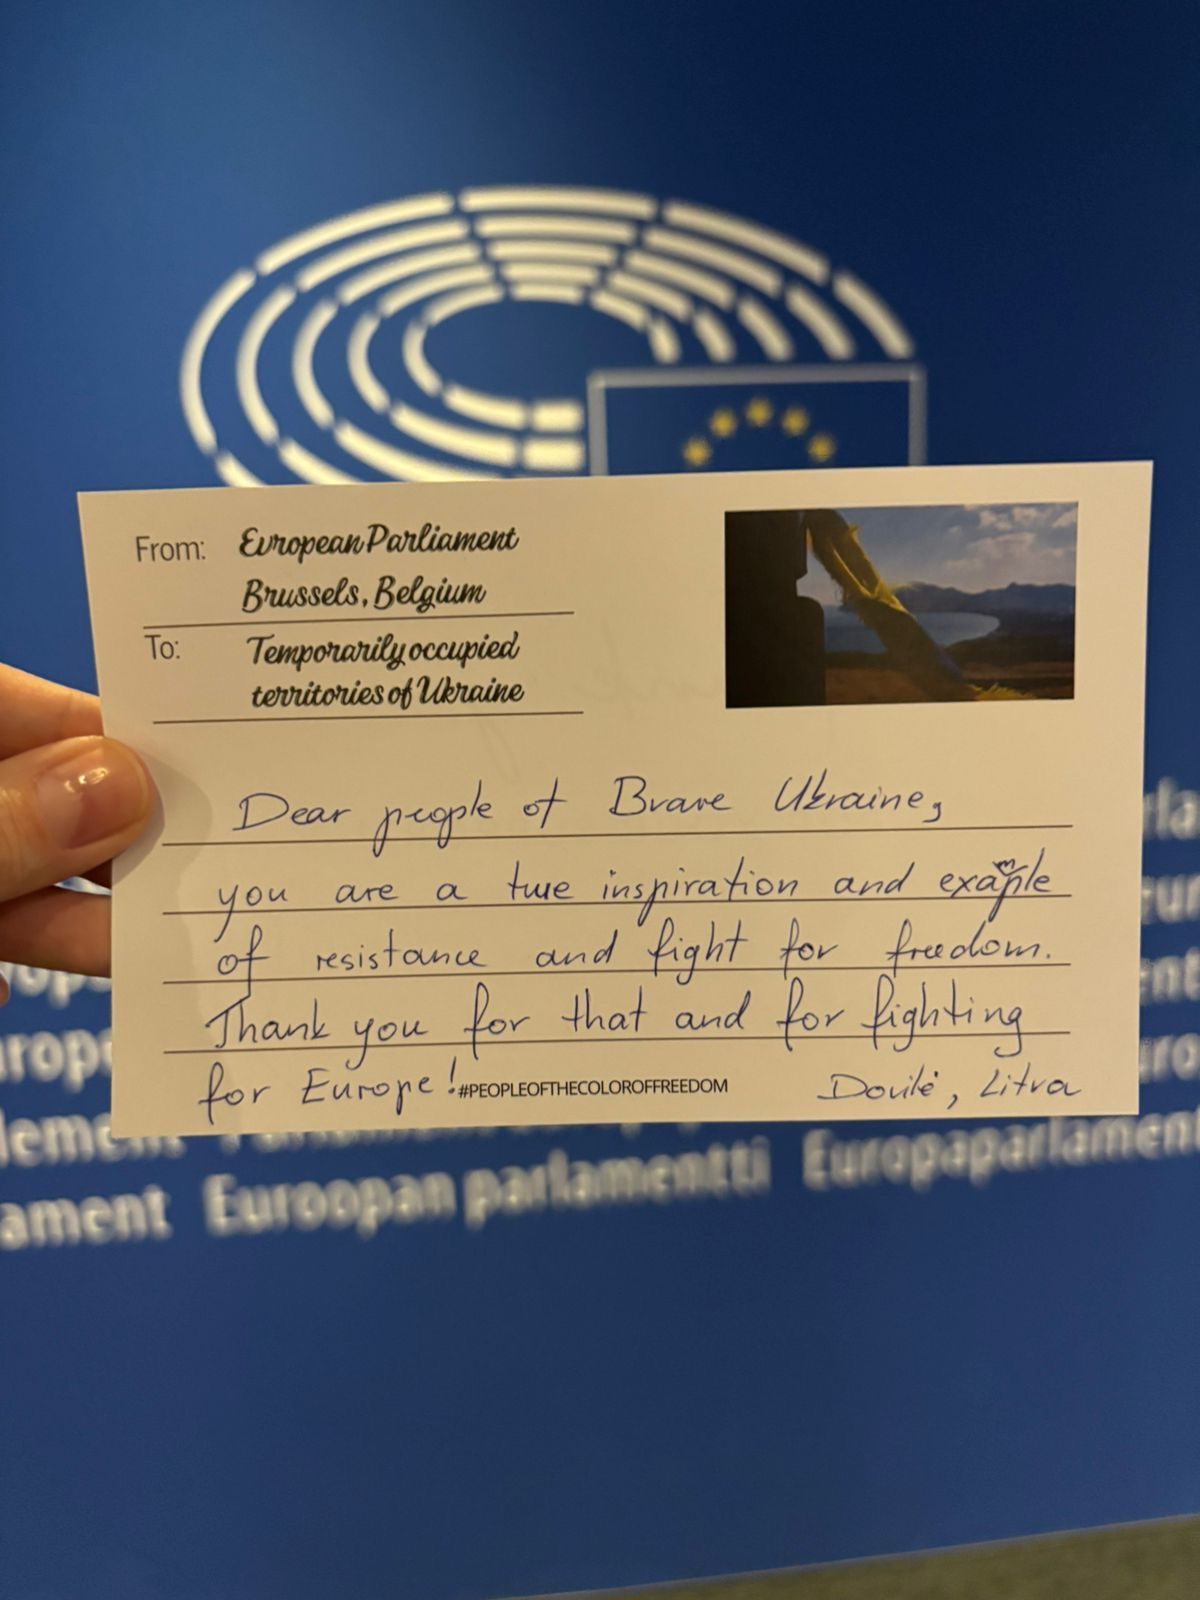 From: European Parliament
Brussels, Belgium
To: Temporarily occupied
territories of Ukraine
Dear people of Brave Ukraine,
you are a true inspiration and example
of resistance and fight for freedom.
Thank you for that and for fighting
for Europe! #PEOPLEOFTHECOLOROFFREEDOM Dovilė, Litva
ament Euroopan parlamentti Europaparlament